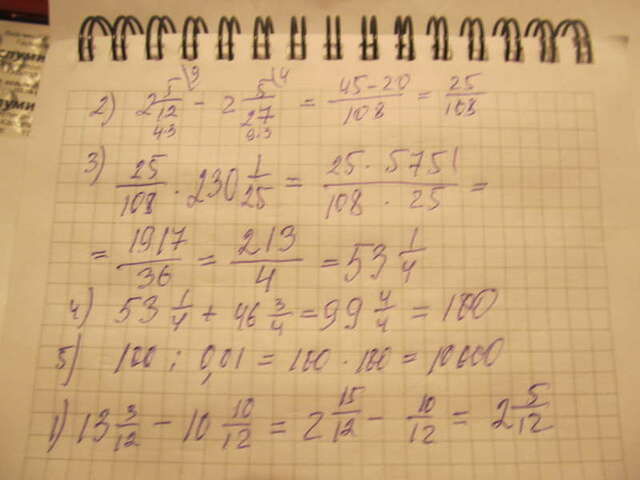 СЛУМИ
СЛУМИ
2) 2 5/12 - 2 5/27 = (45-20)/108 = 25/108
9 4
4·3 9·3
3) 25/108 · 230 1/25 = (25 · 5751)/(108 · 25) =
= 1917/36 = 213/4 = 53 1/4
4) 53 1/4 + 46 3/4 = 99 4/4 = 100
5) 100 : 0,01 = 100 · 100 = 10000
1) 13 3/12 - 10 10/12 = 2 15/12 - 10/12 = 2 5/12